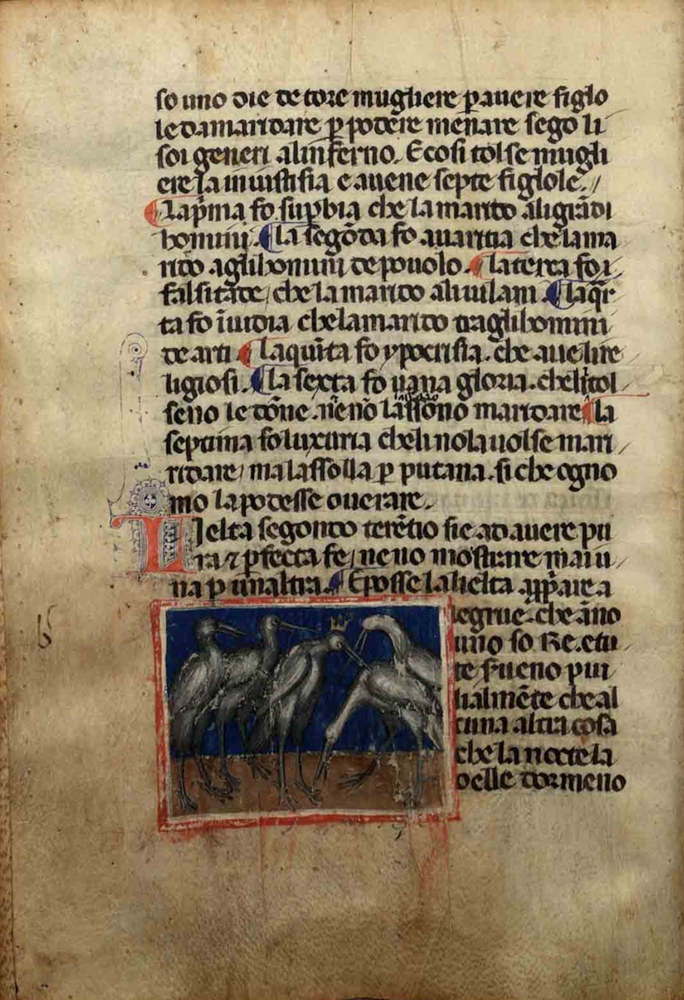 so uno die de tore mugliere ꝑ auere figlo
le da maridare ꝑ podere menare sego li
soi generi al inferno. E cosi tolse mugli
ere la iniustisia e auene septe figlole.
la p̃ma fo suꝑbia che la marido ali grãdi
homini. la segõda fo auaritia che la ma
rido agli homini de pouolo. la terça fo i
falsitade, che la marido ali uilani. la qr̃
ta fo ĩuidia che la marido tra gli homini
de arti. la quĩta fo ypocrisia. che aue li re
ligiosi. la sexta fo uana gloria. che li tol
seno le dõne
maridare la
septima fo luxuria che li no la uolse mari
ridare, ma lassolla ꝑ putana. si che ogno
mo la podesse ouerare.
Lielta segondo terẽtio sie ad auere pu
ra ⁊ ꝑfecta fe, ne no mostrare mai u
na ꝑ un altra. E posse la lielta aꝓpriare a
le grue. che ãno
uno so Re. e tu
te serueno piu
lialmẽte che al
cuna altra cosa
che la nocte la
o elle dormeno